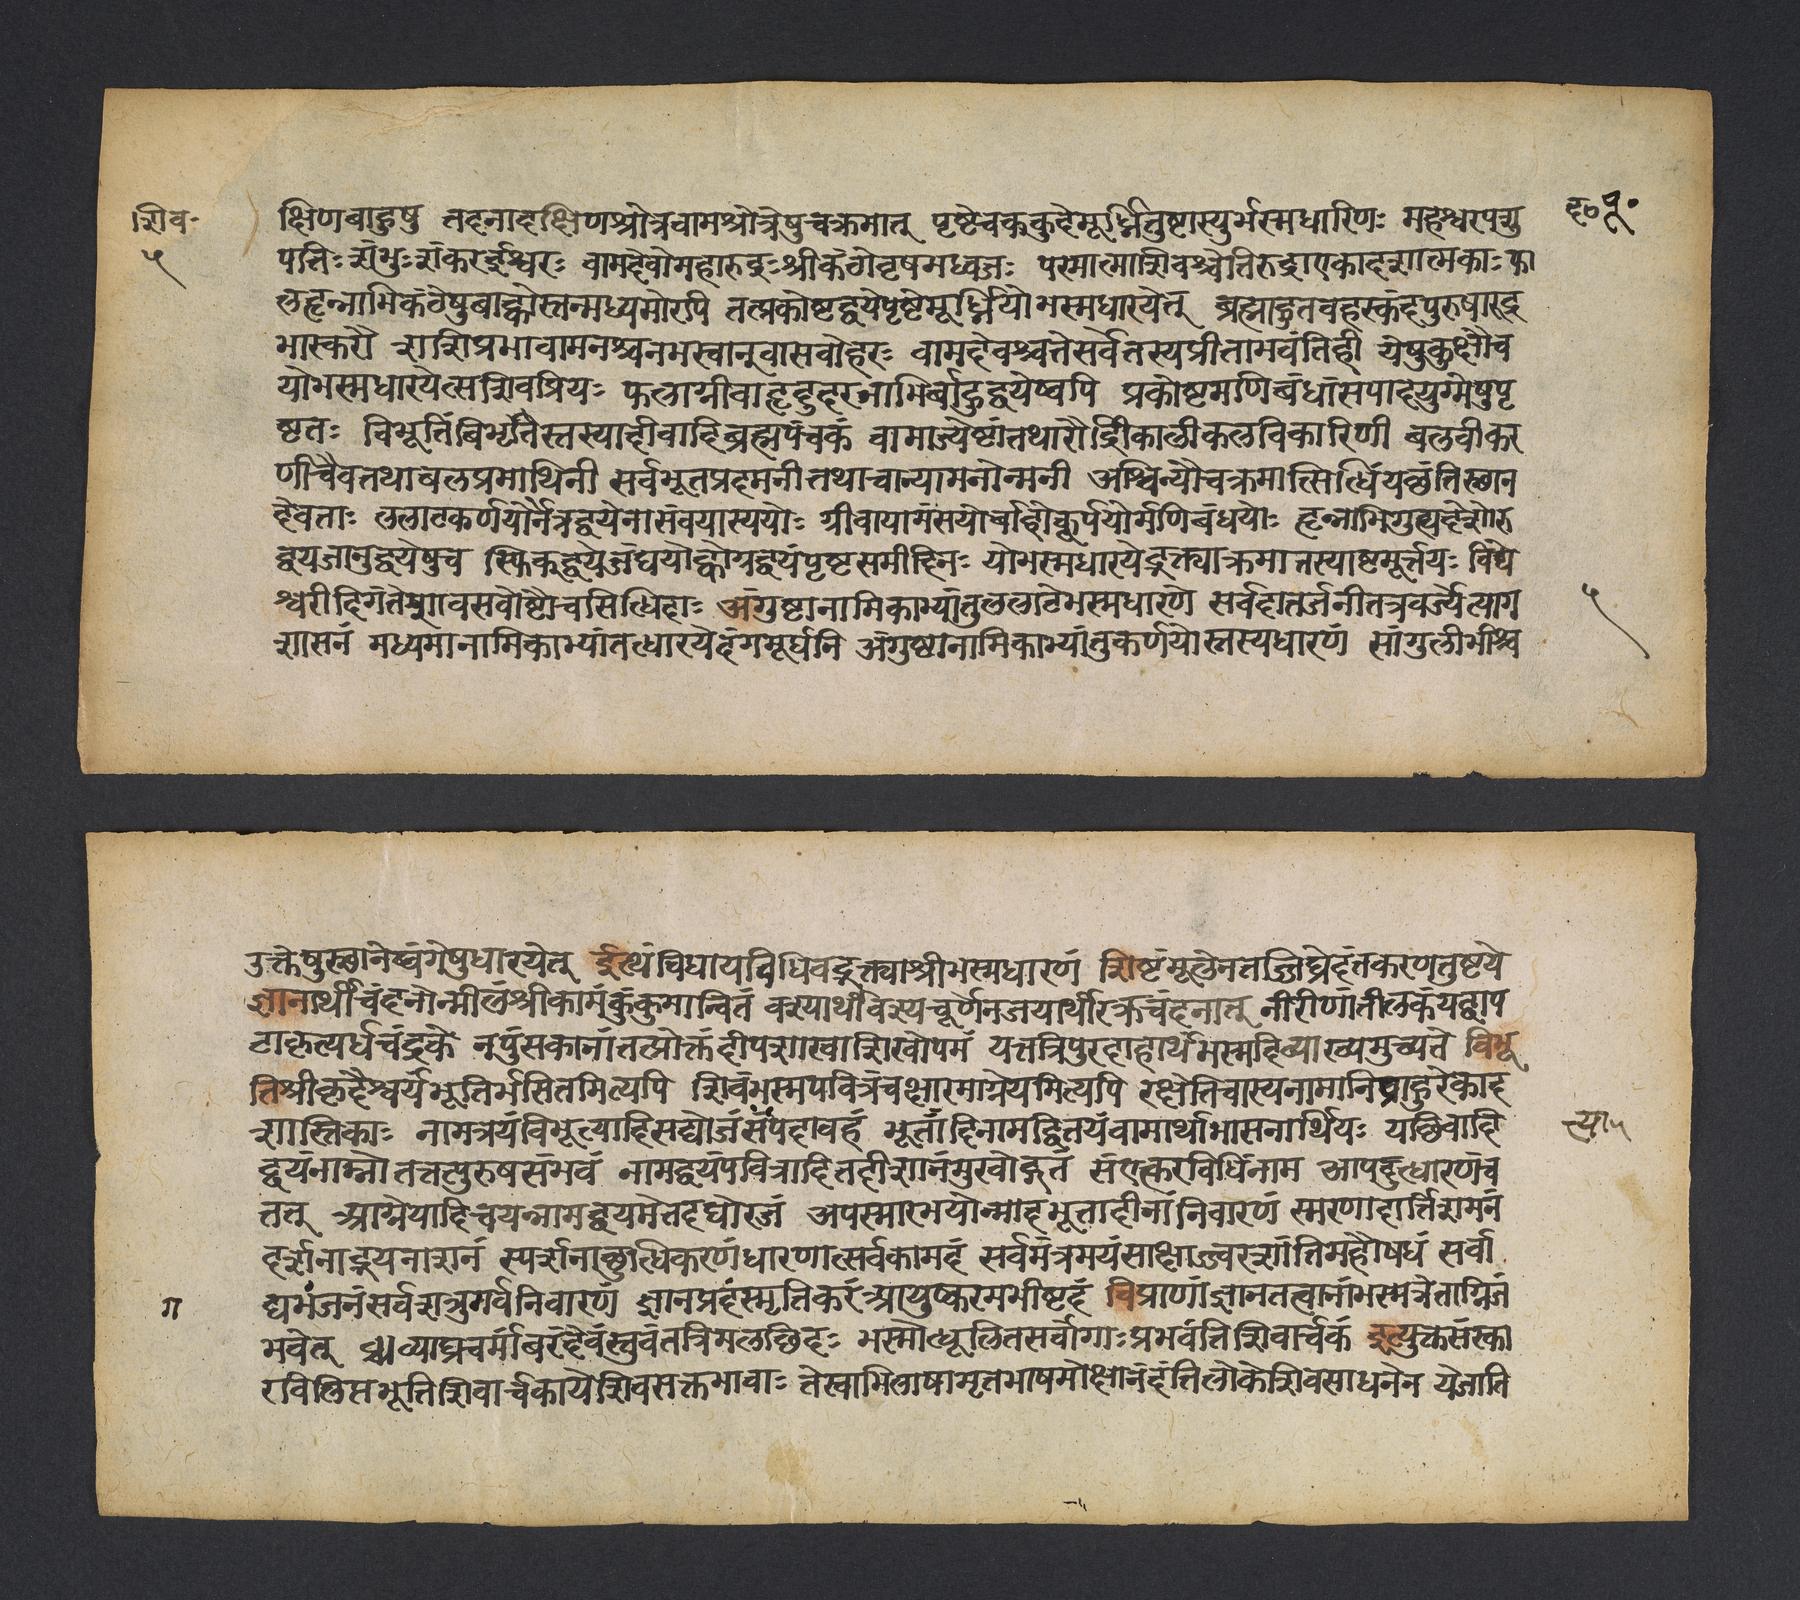 शिव॰
५
द॰पू॰
क्षिणबाहुषु तदनादक्षिणश्रोत्रवामश्रोत्रेषुचक्रमात् पृष्टेचककुदेमूर्ध्नितुष्टास्युर्भस्मधारिणः महेश्वरपशु
पतिःशंभुःशंकरईश्वरः वामदेवोमहारुद्रःश्रीकंठोवृषभध्वजः परमात्माशिवश्चेतिरुद्राएकादशात्मकाः फा
लहृन्नाभिकंठेषुबाह्वोस्तन्मध्यमोरपि तत्प्रकोष्टद्वयेपृष्टेमूर्ध्नियोभस्मधारयेत् ब्रह्माहुतवहस्कंदपुरुषारुद्र
भास्करौ शशिप्रभावामनश्चनभस्वानुवासवोहरः वामदेवश्चतेसर्वेतस्यप्रीताभवंतिही येषुकुक्षौच
योभस्मधारयेत्सशिवप्रियः फलाग्रीवाहृदुदरनाभिर्बाहुद्वयेष्वपि प्रकोष्टमणिबंधांसपादेयुग्मेषुपृ
ष्टतः विभूतिंबिभृतैस्तस्यादीवादिब्रह्मपंचकं वामाज्येष्टातथारौद्रीकालीकलविकारिणी बलवीकर
णीचैवतथाबलप्रमाथिनी सर्वभूतप्रदमनीतथाचान्यामनोन्मनी अश्विन्यौचक्रमात्सिद्धिंयछंतिस्थान
देवताः ललाटकर्णयोर्नेत्रद्वयेनासंवयास्ययोः ग्रीवायामंसयोर्बाह्वोकूर्पयोर्मणिबंधयोः हृन्नाभिगुह्यदेशोरु
द्वयजानुद्वयेषुच स्फिक्द्वयेजंघयोर्द्वोग्रद्वयेपृष्टसमीहिनः योभस्मधारयेद्भक्त्याक्रमात्तस्याष्टमूर्त्तयः विद्ये
श्वरीदिगंतेशावसवोष्टौचसिद्धिदाः अंगुष्टानामिकाभ्यांतुललाटेभस्मधारणे सर्वदातर्जनीतत्रवर्ज्येत्याग
शासनं मध्यमानामिकाभ्यांतद्धारयेदंगमूर्धनि अंगुष्ठानामिकाभ्यांतुकर्णयोस्तस्यधारणं सांगुलीभीश्च
५
उक्तेषुस्थानेष्वंगेषुधारयेत् इत्थंविधायविधिवद्भक्त्याश्रीभस्मधारणं शिष्टंमूलेनतज्जिघ्रेदंतकरणतुष्टये
ज्ञानार्थीचंदनोन्मीलंश्रीकामंकुंकुमान्वितं वश्यार्थीविस्यचूर्णेनजयार्थीरक्तचंदनात् नीरीणांतीलकंयद्वाप
टाकृत्यर्धचंद्रके नपुंसकानांतत्प्रोक्तंदीपशाखाशिखोपमं यत्तत्रिपुरदाहार्थेभस्मदिव्याख्यमुच्यते विभू
तिश्रीकृदैश्वर्यंभूतिर्भसितमित्यपि शिवंभस्मपवित्रंचक्षारमाग्नेयमित्यपि रक्षेतिचास्यनामानिप्राहुरेकाद
शास्तिकाः नामत्रयंविभूत्यादिसद्योजंसंपदावहं भूतादिनामद्वितयंवामार्थाभासनार्थिये यछिवादि
त्या५
द्वयंनाम्नोतत्तत्पुरुषसंभवं नामद्वयंपवित्रादितदीशानंमुखोद्गतं संत्कारविधिंनाम आपदुद्धारणंच
तत् आग्नेयादिचयन्नामद्वयमेतदघोरजं अपस्मारभयोन्मादभूतादीनांनिवारणं स्मरणादार्त्तिशमनं
दर्शनाद्भयनाशनं स्पर्शनाछुद्धिकरणंधारणात्सर्वकामदं सर्वमंत्रमयंसाक्षाज्ज्वरशांतिमहौषधं सर्वा
ग
द्यभंजनंसर्वशत्रुगर्वनिवारणं ज्ञानप्रदंस्मृतिकरंआयुष्करमभीष्टदं विप्राणांज्ञानतत्वानांभस्मत्रेताग्निजं
भवेत् व्याघ्रचर्मांबरंदेवंस्तुवंतत्रिमलछिदः भस्मोद्धूलितसर्वांगाःप्रभवंतिशिवार्चकं इत्युक्तसंस्का
रविलिप्तभूतिशिवार्चकायेशिवसक्तभावाः तेस्वाभिलाषामृतभाषमोक्षानंदंतिलोकेशिवसाधनेन येजाति